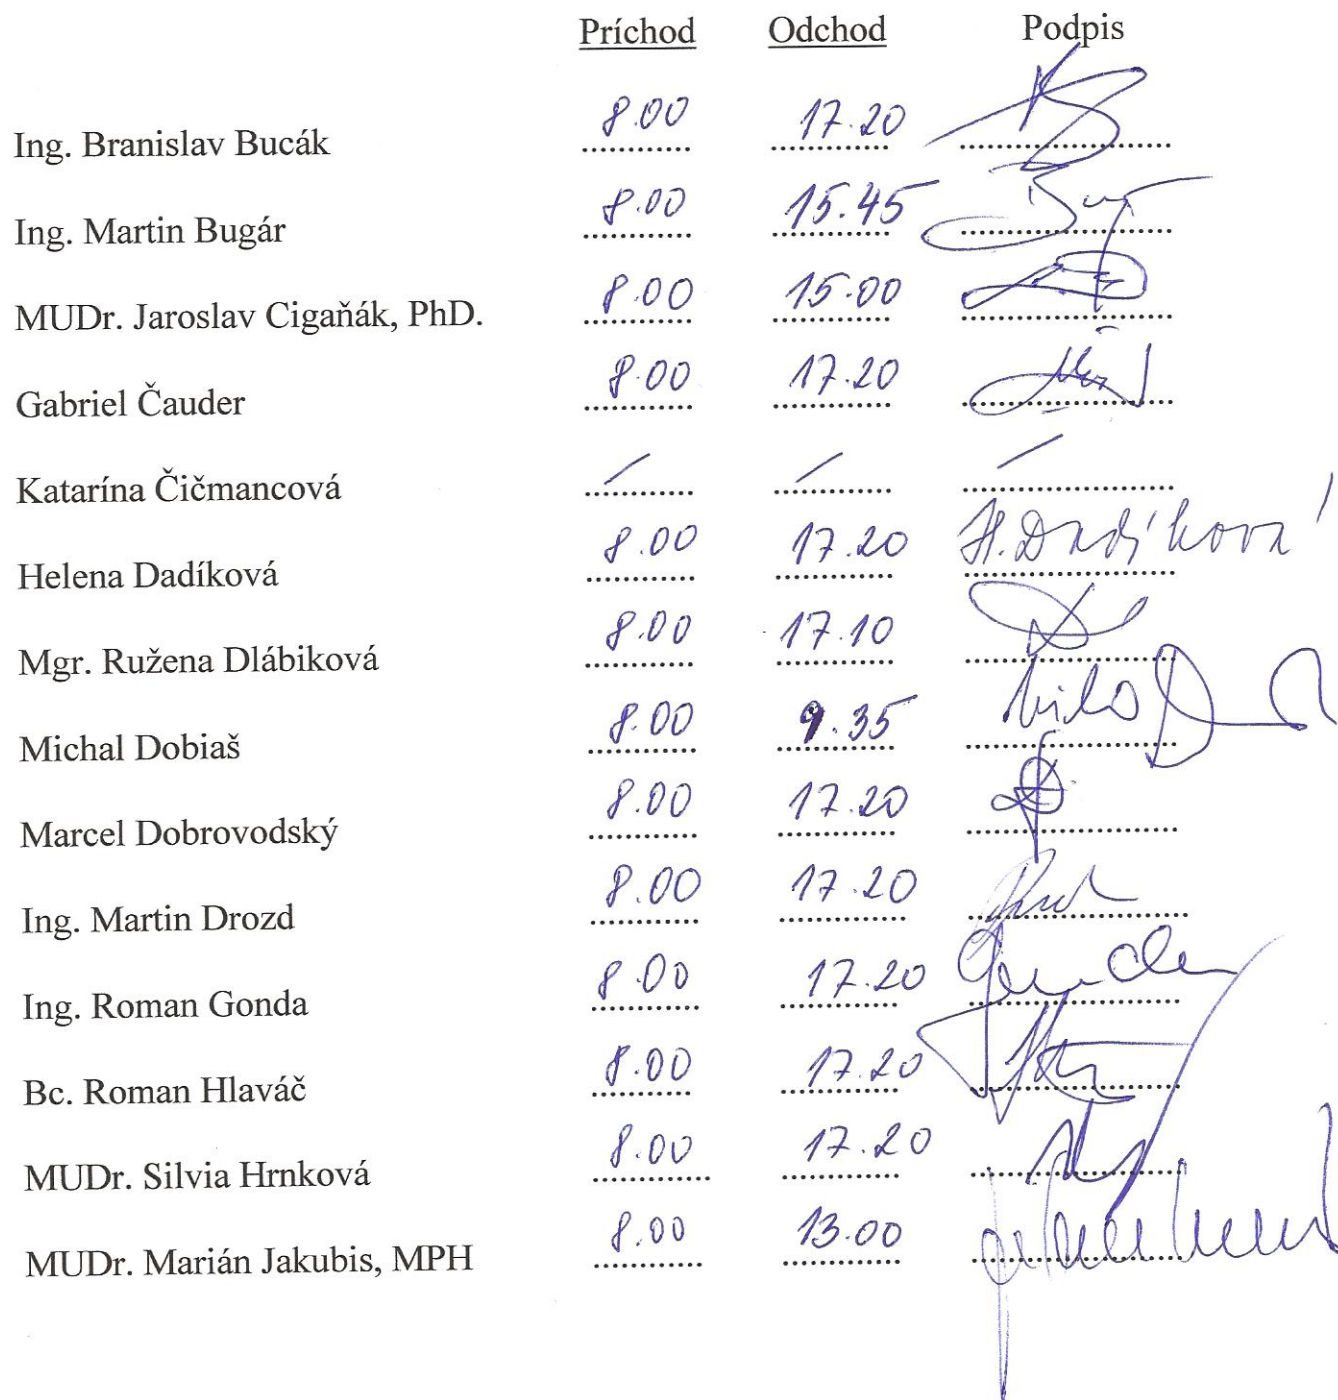 Príchod Odchod Podpis
Ing. Branislav Bucák 8.00 17.20
Ing. Martin Bugár 8.00 15.45
MUDr. Jaroslav Cigaňák, PhD. 8.00 15.00
Gabriel Čauder 8.00 17.20
Katarína Čičmancová / / /
Helena Dadíková 8.00 17.20 H. Dadíková
Mgr. Ružena Dlábiková 8.00 17.10
Michal Dobiaš 8.00 9.35
Marcel Dobrovodský 8.00 17.20
Ing. Martin Drozd 8.00 17.20
Ing. Roman Gonda 8.00 17.20
Bc. Roman Hlaváč 8.00 17.20
MUDr. Silvia Hrnková 8.00 17.20
MUDr. Marián Jakubis, MPH 8.00 13.00